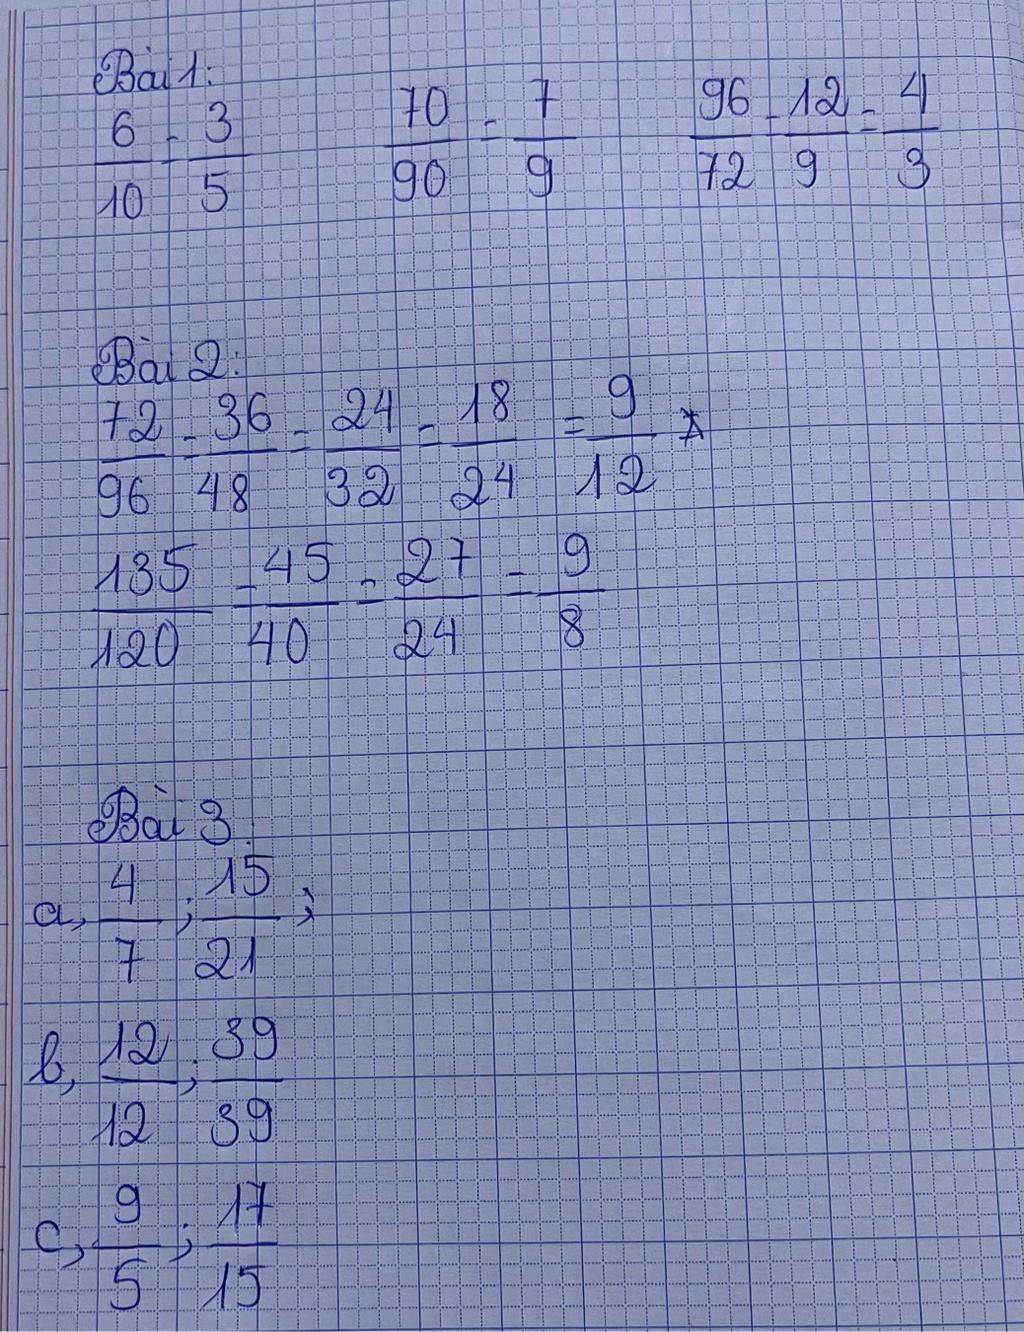 Bài 1:
6/10 = 3/5 70/90 = 7/9 96/72 = 12/9 = 4/3
Bài 2:
72/96 = 36/48 = 24/32 = 18/24 = 9/12
135/120 = 45/40 = 27/24 = 9/8
Bài 3:
a, 4/7 ; 15/21 ;
b, 12/12 ; 39/39
c, 9/5 ; 17/15